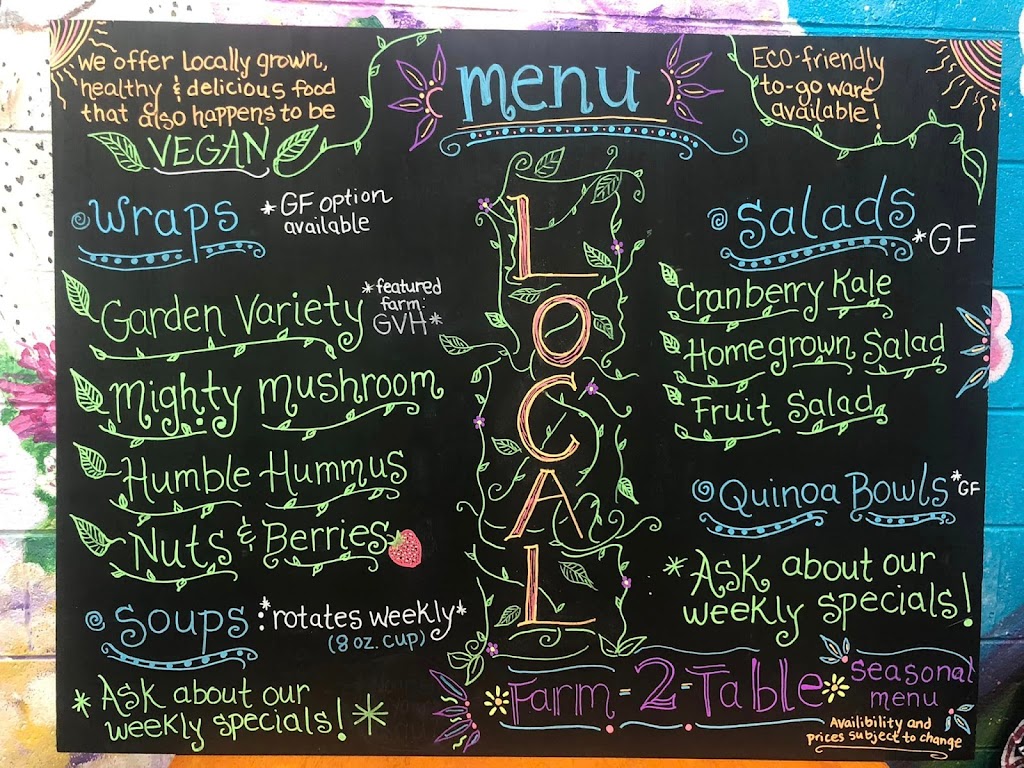 We offer locally grown,
healthy & delicious food
that also happens to be
VEGAN
menu
Eco-friendly
to-go ware
available!
Wraps
*GF option
available
Garden Variety
*featured
farm:
GVH*
Mighty Mushroom
Humble Hummus
Nuts & Berries
Soups
*rotates weekly*
(8 oz. cup)
*Ask about our
weekly specials!*
LOCAL
Salads
*GF
Cranberry Kale
Homegrown Salad
Fruit Salad
Quinoa Bowls
*GF
*Ask about our
weekly specials!
Farm-2-Table
Seasonal
menu
Availibility and
prices subject to change